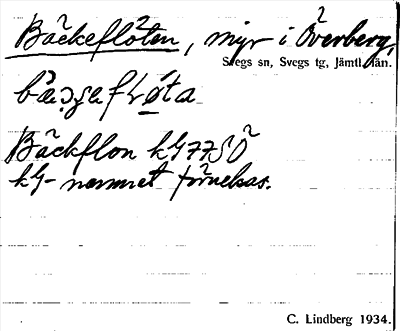 Bäckeflöten, myr i Överberg,
Svegs sn, Svegs tg, Jämtl. län.
Bäckflon kg 77 SÖ
kg-namnet förnekas.
C. Lindberg 1934.